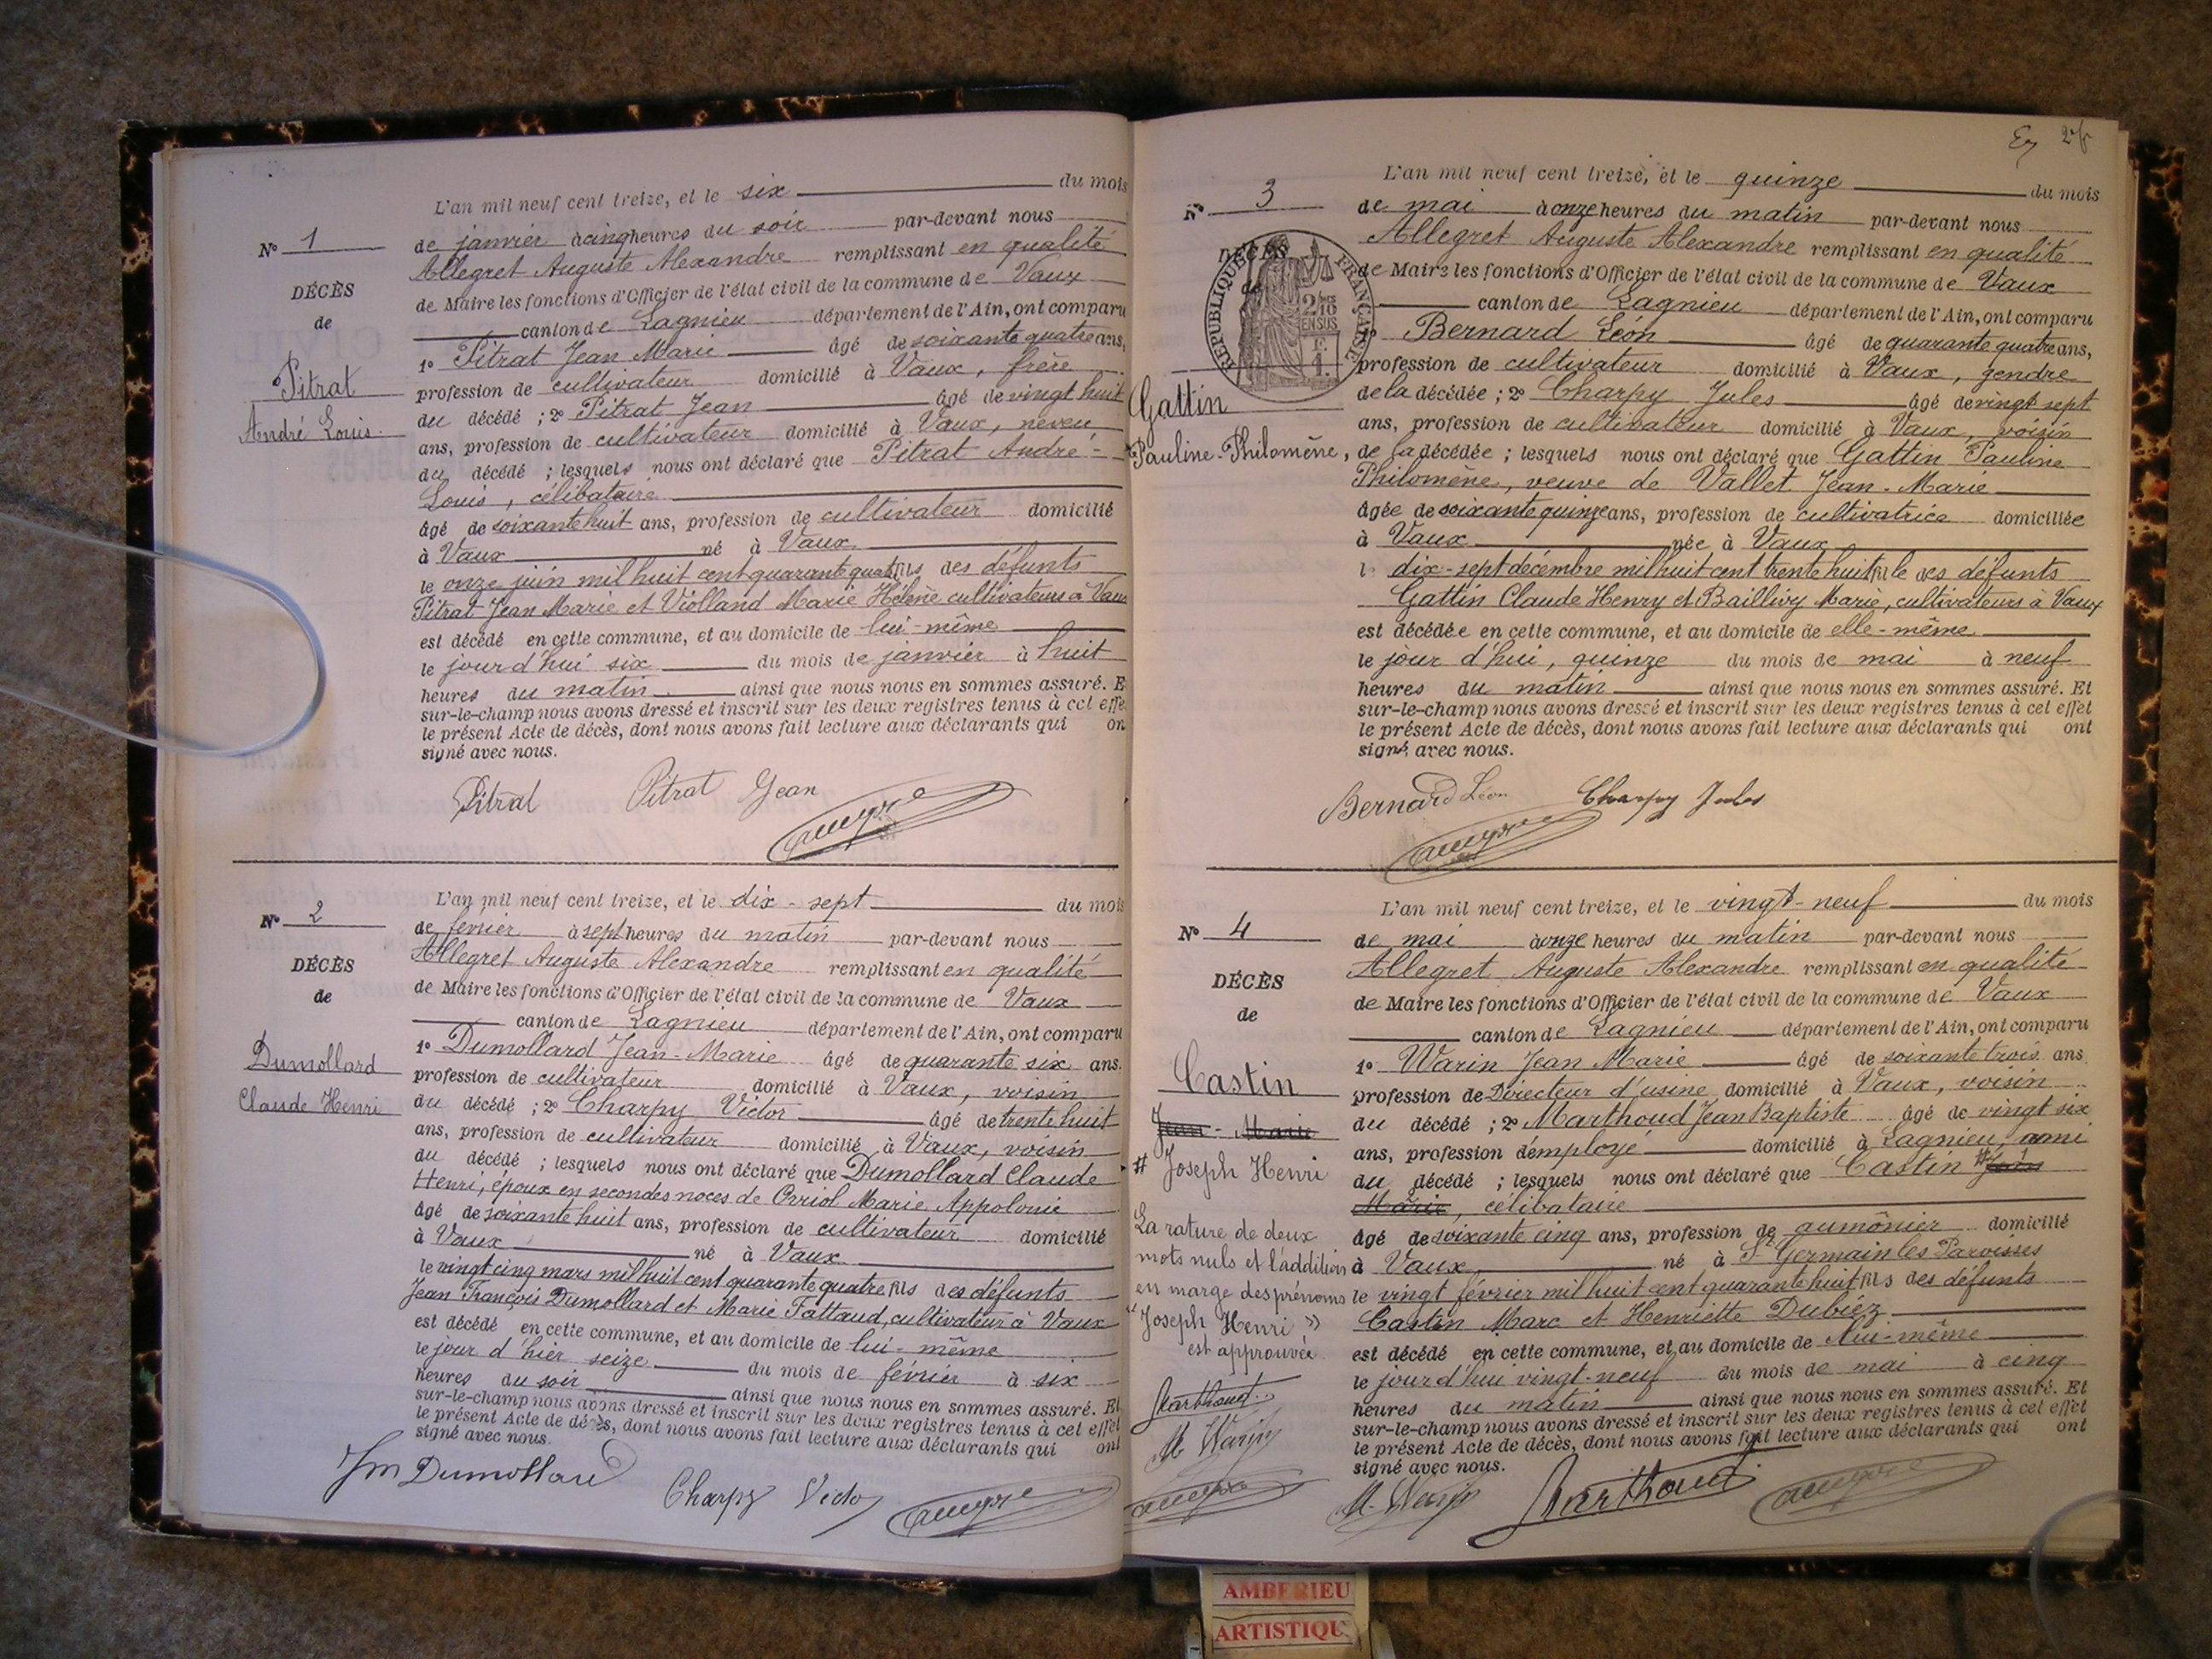 L'an mil neuf cent treize, et le six du mois
N° 1
de janvier à cinq heures du soir par-devant nous
Allegret Auguste Alexandre remplissant en qualité
DÉCÈS
de Maire les fonctions d'Officier de l'état civil de la commune de Vaux
de
canton de Lagnieu département de l'Ain, ont comparu
1° Pitrat Jean Marie âgé de soixante quatre ans,
Pitrat
profession de cultivateur domicilié à Vaux, frère
André Louis.
du décédé ; 2° Pitrat Jean âgé de vingt huit
ans, profession de cultivateur domicilié à Vaux, neveu
du décédé ; lesquels nous ont déclaré que Pitrat André-
Louis, célibataire
âgé de soixante huit ans, profession de cultivateur domicilié
à Vaux né à Vaux
le onze juin mil huit cent quarante quatre fils des défunts
Pitrat Jean Marie et Violland Marie Hélène cultivateurs à Vaux
est décédé en cette commune, et au domicile de lui-même
le jour d'hui six du mois de janvier à huit
heures du matin ainsi que nous nous en sommes assuré. E
sur-le-champ nous avons dressé et inscrit sur les deux registres tenus à cet effe
le présent Acte de décès, dont nous avons fait lecture aux déclarants qui on
signé avec nous.
Pitrat Pitrat Jean
L'an mil neuf cent treize, et le dix-sept du mois
N° 2
de février à sept heures du matin par-devant nous
Allegret Auguste Alexandre remplissant en qualité
DÉCÈS
de Maire les fonctions d'Officier de l'état civil de la commune de Vaux
de
canton de Lagnieu département de l'Ain, ont comparu
1° Dumollard Jean-Marie âgé de quarante six ans.
Dumollard
profession de cultivateur domicilié à Vaux, voisin
Claude Henri
du décédé ; 2° Charpy Victor âgé de trente huit
ans, profession de cultivateur domicilié à Vaux, voisin
du décédé ; lesquels nous ont déclaré que Dumollard Claude
Henri, époux en secondes noces de Orriol Marie Appolonie
âgé de soixante huit ans, profession de cultivateur domicilié
à Vaux né à Vaux
le vingt cinq mars mil huit cent quarante quatre fils des défunts
Jean François Dumollard et Marie Fattaud, cultivateur à Vaux
est décédé en cette commune, et au domicile de lui-même
le jour d'hier seize du mois de février à six
heures du soir ainsi que nous nous en sommes assuré. Et
sur-le-champ nous avons dressé et inscrit sur les deux registres tenus à cet effet
le présent Acte de décès, dont nous avons fait lecture aux déclarants qui ont
signé avec nous.
Jm Dumollard Charpy Victor
L'an mil neuf cent treize, et le quinze du mois
N° 3
de mai à onze heures du matin par-devant nous
Allegret Auguste Alexandre remplissant en qualité
DÉCÈS
de Maire les fonctions d'Officier de l'état civil de la commune de Vaux
de
RÉPUBLIQUE FRANÇAISE
canton de Lagnieu département de l'Ain, ont comparu
1° Bernard Léon âgé de quarante quatre ans,
profession de cultivateur domicilié à Vaux, gendre
Gattin
de la décédée ; 2° Charpy Jules âgé de vingt sept
ans, profession de cultivateur domicilié à Vaux, voisin
Pauline-Philomène,
de la décédée ; lesquels nous ont déclaré que Gattin Pauline
Philomène, veuve de Vallet Jean-Marie
âgée de soixante quinze ans, profession de cultivatrice domiciliée
à Vaux née à Vaux
le dix-sept décembre mil huit cent trente huit fille des défunts
Gattin Claude Henry et Baillivy Marie, cultivateurs à Vaux
est décédée en cette commune, et au domicile de elle-même
le jour d'hui, quinze du mois de mai à neuf
heures du matin ainsi que nous nous en sommes assuré. Et
sur-le-champ nous avons dressé et inscrit sur les deux registres tenus à cet effet
le présent Acte de décès, dont nous avons fait lecture aux déclarants qui ont
signé avec nous.
Bernard Léon Charpy Jules
L'an mil neuf cent treize, et le vingt-neuf du mois
N° 4
de mai à onze heures du matin par-devant nous
Allegret Auguste Alexandre remplissant en qualité
DÉCÈS
de Maire les fonctions d'Officier de l'état civil de la commune de Vaux
de
canton de Lagnieu département de l'Ain, ont comparu
1° Warin Jean Marie âgé de soixante trois ans
Castin
profession de Directeur d'usine domicilié à Vaux, voisin
Jean-Marie
du décédé ; 2° Marthoud Jean Baptiste âgé de vingt six
# Joseph Henri
ans, profession d'employé domicilié à Lagnieu, ami
du décédé ; lesquels nous ont déclaré que Castin # Jean
Marie, célibataire
La rature de deux
mots nuls et l'addition
en marge des prénoms
"Joseph Henri"
est approuvée
âgé de soixante cinq ans, profession de aumônier domicilié
à Vaux né à St Germain les Paroisses
le vingt février mil huit cent quarante huit fils des défunts
Castin Marc et Henriette Dubiéz
est décédé en cette commune, et au domicile de lui-même
le jour d'hui vingt-neuf du mois de mai à cinq
heures du matin ainsi que nous nous en sommes assuré. Et
sur-le-champ nous avons dressé et inscrit sur les deux registres tenus à cet effet
le présent Acte de décès, dont nous avons fait lecture aux déclarants qui ont
signé avec nous.
Marthoud
M. Warin
M. Warin Marthoud
AMBERIEU
ARTISTIQU